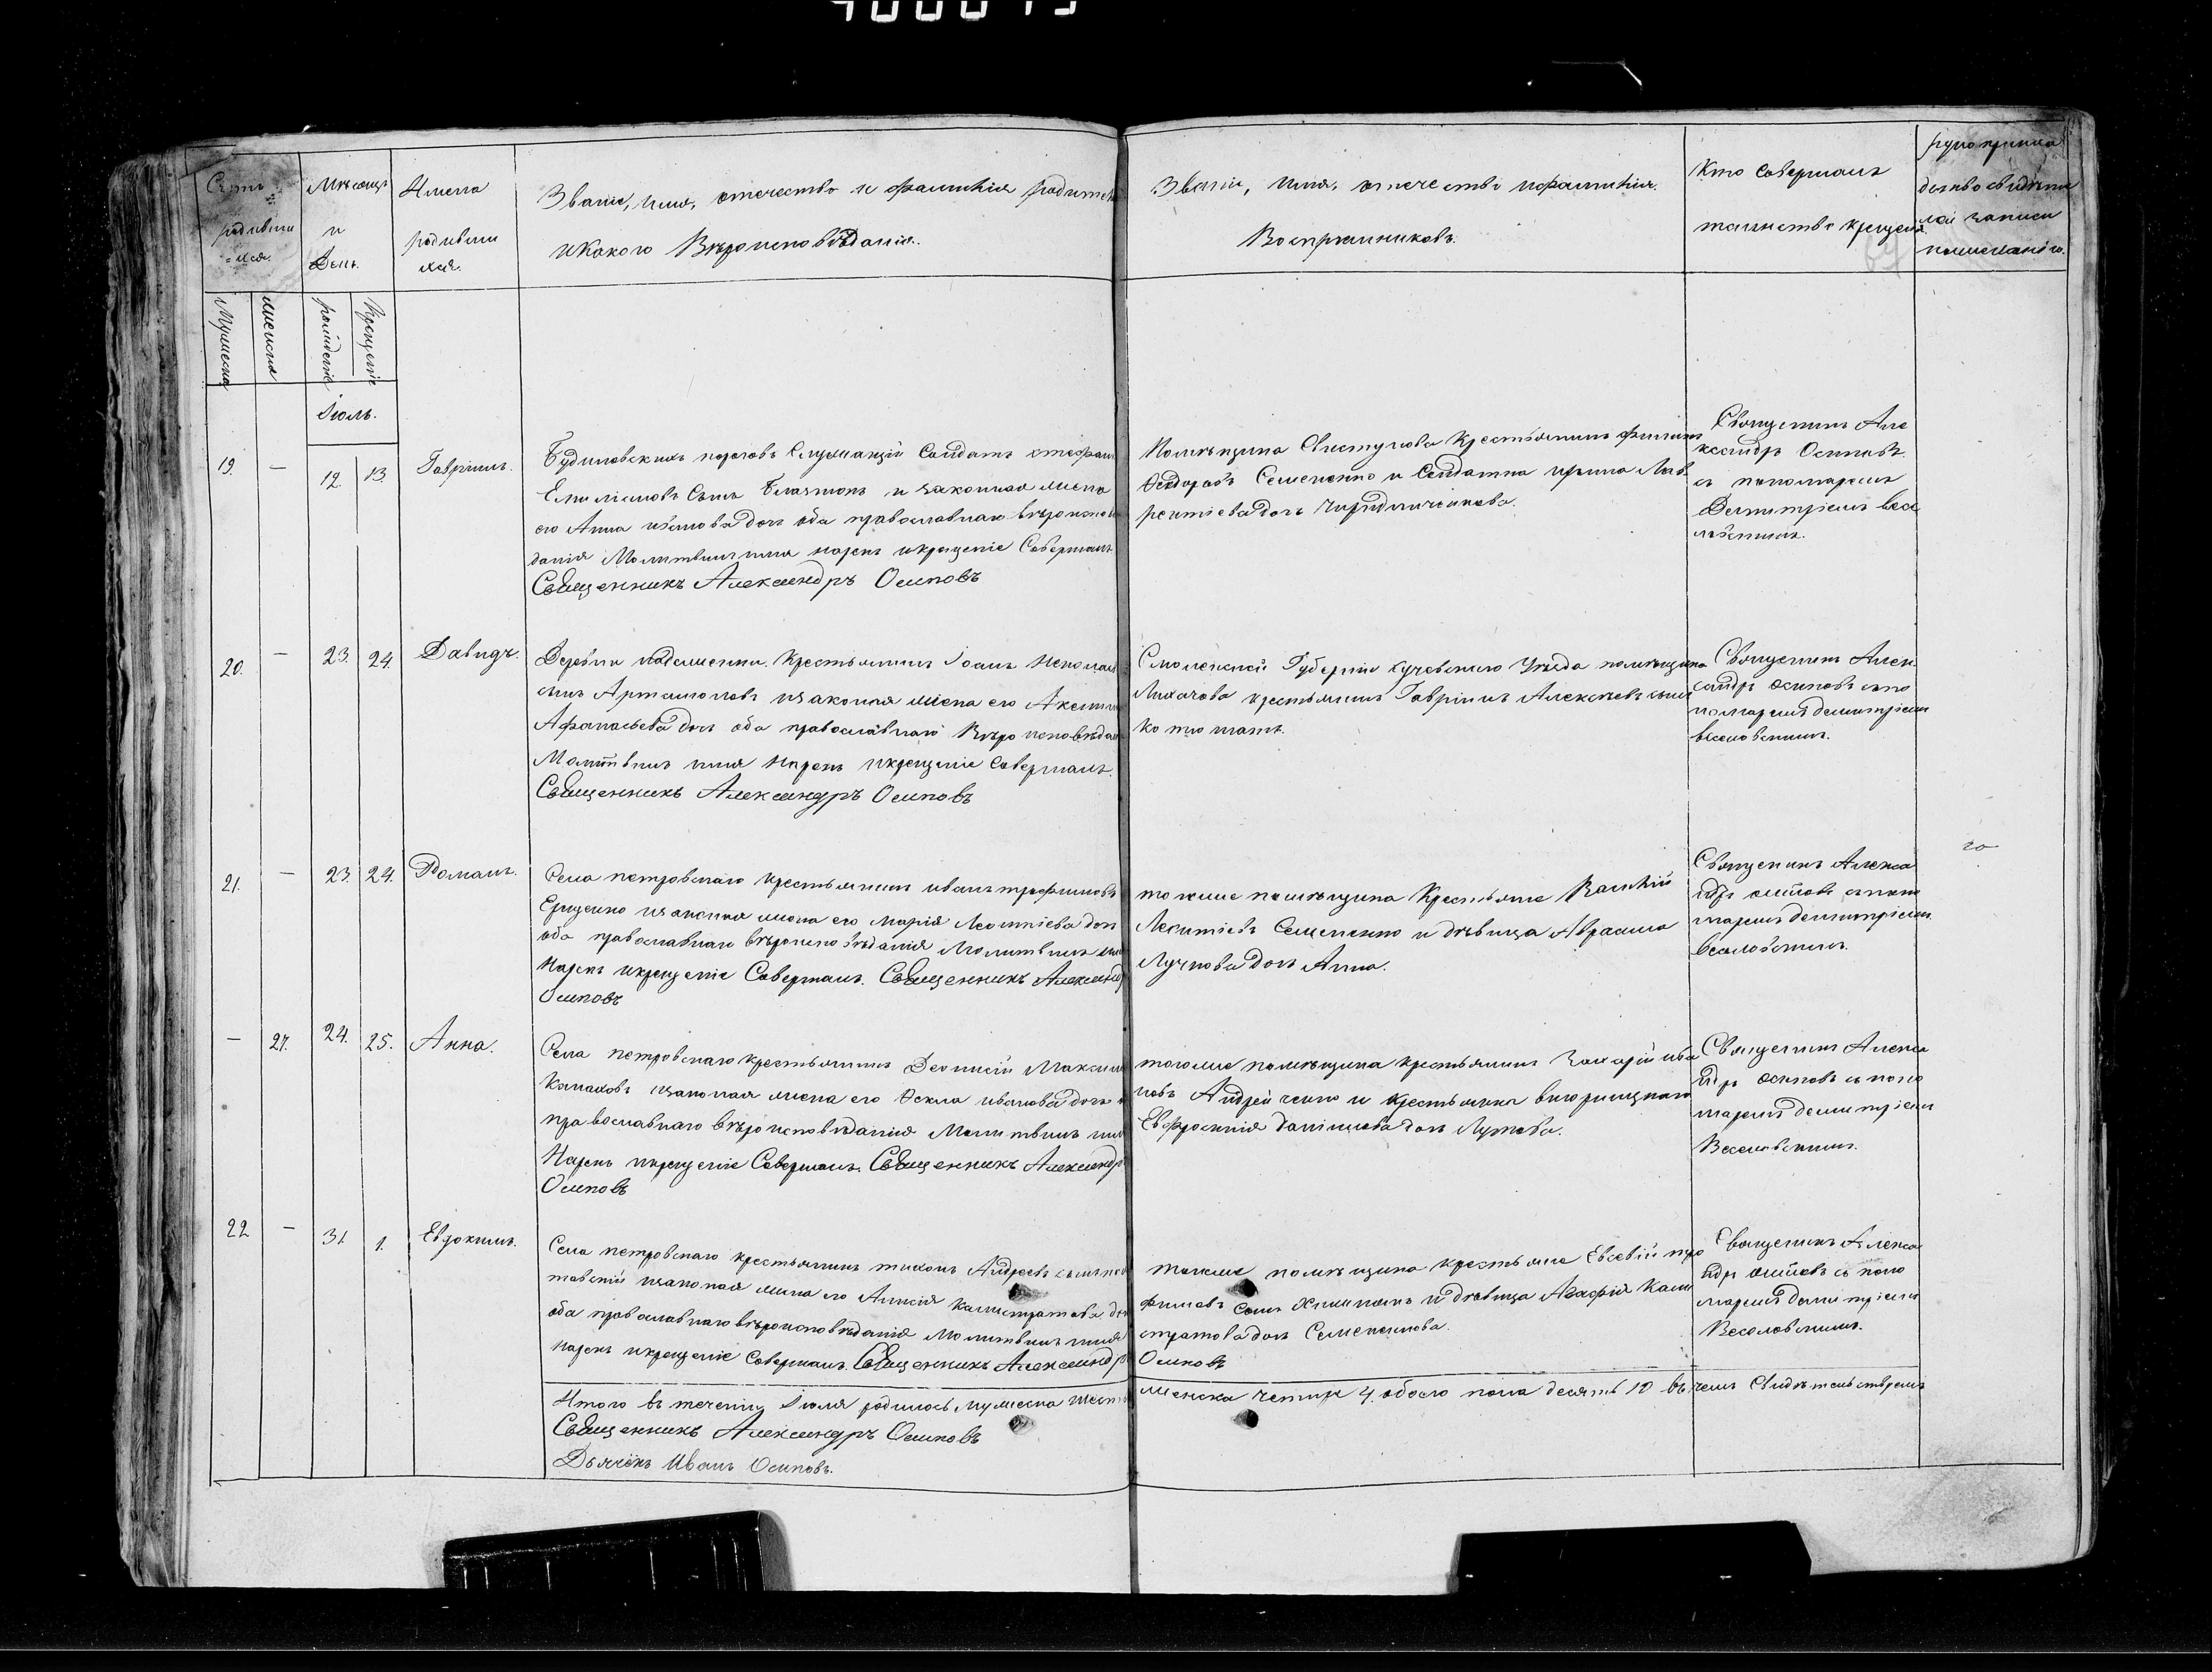 Счетъ родивши=хся.
Мѣсяцъ и День.
Имена родивши хся.
Званіе, имя, отечество и фамилія родител
и Какого Вѣроисповѣданія.
Званіе, имя, отечество и фамилія.
Воспріемниковъ.
Кто Совершалъ
таинство крещенія.
рукоприкла
дство свидѣте
лей записи
по желанію.
Мужеска
женска
рожденіе
Крещеніе
Іюль.
19.
—
12.
13.
Гавріилъ.
Будиловскихъ пороговъ Служащій Солдатъ стефанъ
Емиліановъ Сынъ и законная жена
его Анна доч оба православнаго вѣроиспов
данія Молитвилъ имя нарекъ икрещеніе Совершалъ
Священникъ Александръ Осиповъ
Помѣщика Свистунова Крестьянинъ филип
Ѳеодоровъ Семененко и Солдатка ирина Лав
рентіева доч
Священникъ Але
ксандръ Осиповъ
съ пономаремъ
Димитріемъ Весе
ловскимъ.
20.
—
23.
24.
Давидъ.
Деревни Крестьянинъ Іоанъ
сынъ Артамоновъ изаконая жена его Аксин
Афанасьева доч оба православнаго Вѣроисповѣдан
Молитвилъ имя Нарекъ икрещеніе Совершалъ.
Священникъ Александръ Осиповъ
Смоленской Губерніи Уѣзда помѣщика
Лихачова крестьянинъ Гавріилъ Алексѣевъ сынъ
Священникъ Алек
сандръ Осиповъ съ по
номаремъ димитріемъ
веселовскимъ.
21.
—
23.
24.
Романъ.
Села петровскаго крестьянинъ иванъ трофимовъ
Ерщенко изаконая жена его Марія Леонтіева доч
оба православнаго вѣроисповѣданія Молитвилъ имя
Нарекъ икрещеніе Совершалъ. Священникъ Александр
Осиповъ
того же помѣщика Крестьяне Василій
Леонтіевъ Семененко и дѣвица Абрама
Лучкова доч Анна.
Священикъ Алекса
ндръ осиповъ съ поно
маремъ димитріемъ
веселовскимъ.
—
27.
24.
25.
Анна.
Села петровскаго крестьянинъ Деонисій Максим
изаконая жена его Ѳекла иванова доч
православнаго вѣроисповѣданія Молитвилъ имя
Нарекъ икрещеніе Совершалъ. Священникъ Александръ
Осиповъ
тогоже помѣщика крестьянинъ Захарій ива
новъ Андрейченко и крестьянка
Евфросинія даніилова доч
Священикъ Алекса
ндръ осиповъ съ поно
маремъ димитріемъ
Веселовскимъ.
22
—
31.
1.
Евдокимъ.
Села петровскаго крестьянинъ тихонъ Андреевъ сынъ пол
тавскій изаконая жена его Анисія Калистратова доч
оба православнаго вѣроисповѣданія Молитвилъ имя
нарекъ икрещеніе Совершалъ. Священникъ Александръ
Осиповъ
тогоже помѣщика крестьяне Евсевій тро
фимовъ Сынъ и дѣвица Агафія Кали
стратова доч Семененкова.
Священикъ Алекса
ндръ осиповъ съ поно
маремъ димитріемъ
Веселовскимъ.
Итого въ теченіи Іюля родилось мужеска шесть женска четири 4. обоего пола десять 10 въ чемъ Свидѣтельствуемъ
Священникъ Александръ Осиповъ
Дьячёкъ Иванъ Осиповъ.